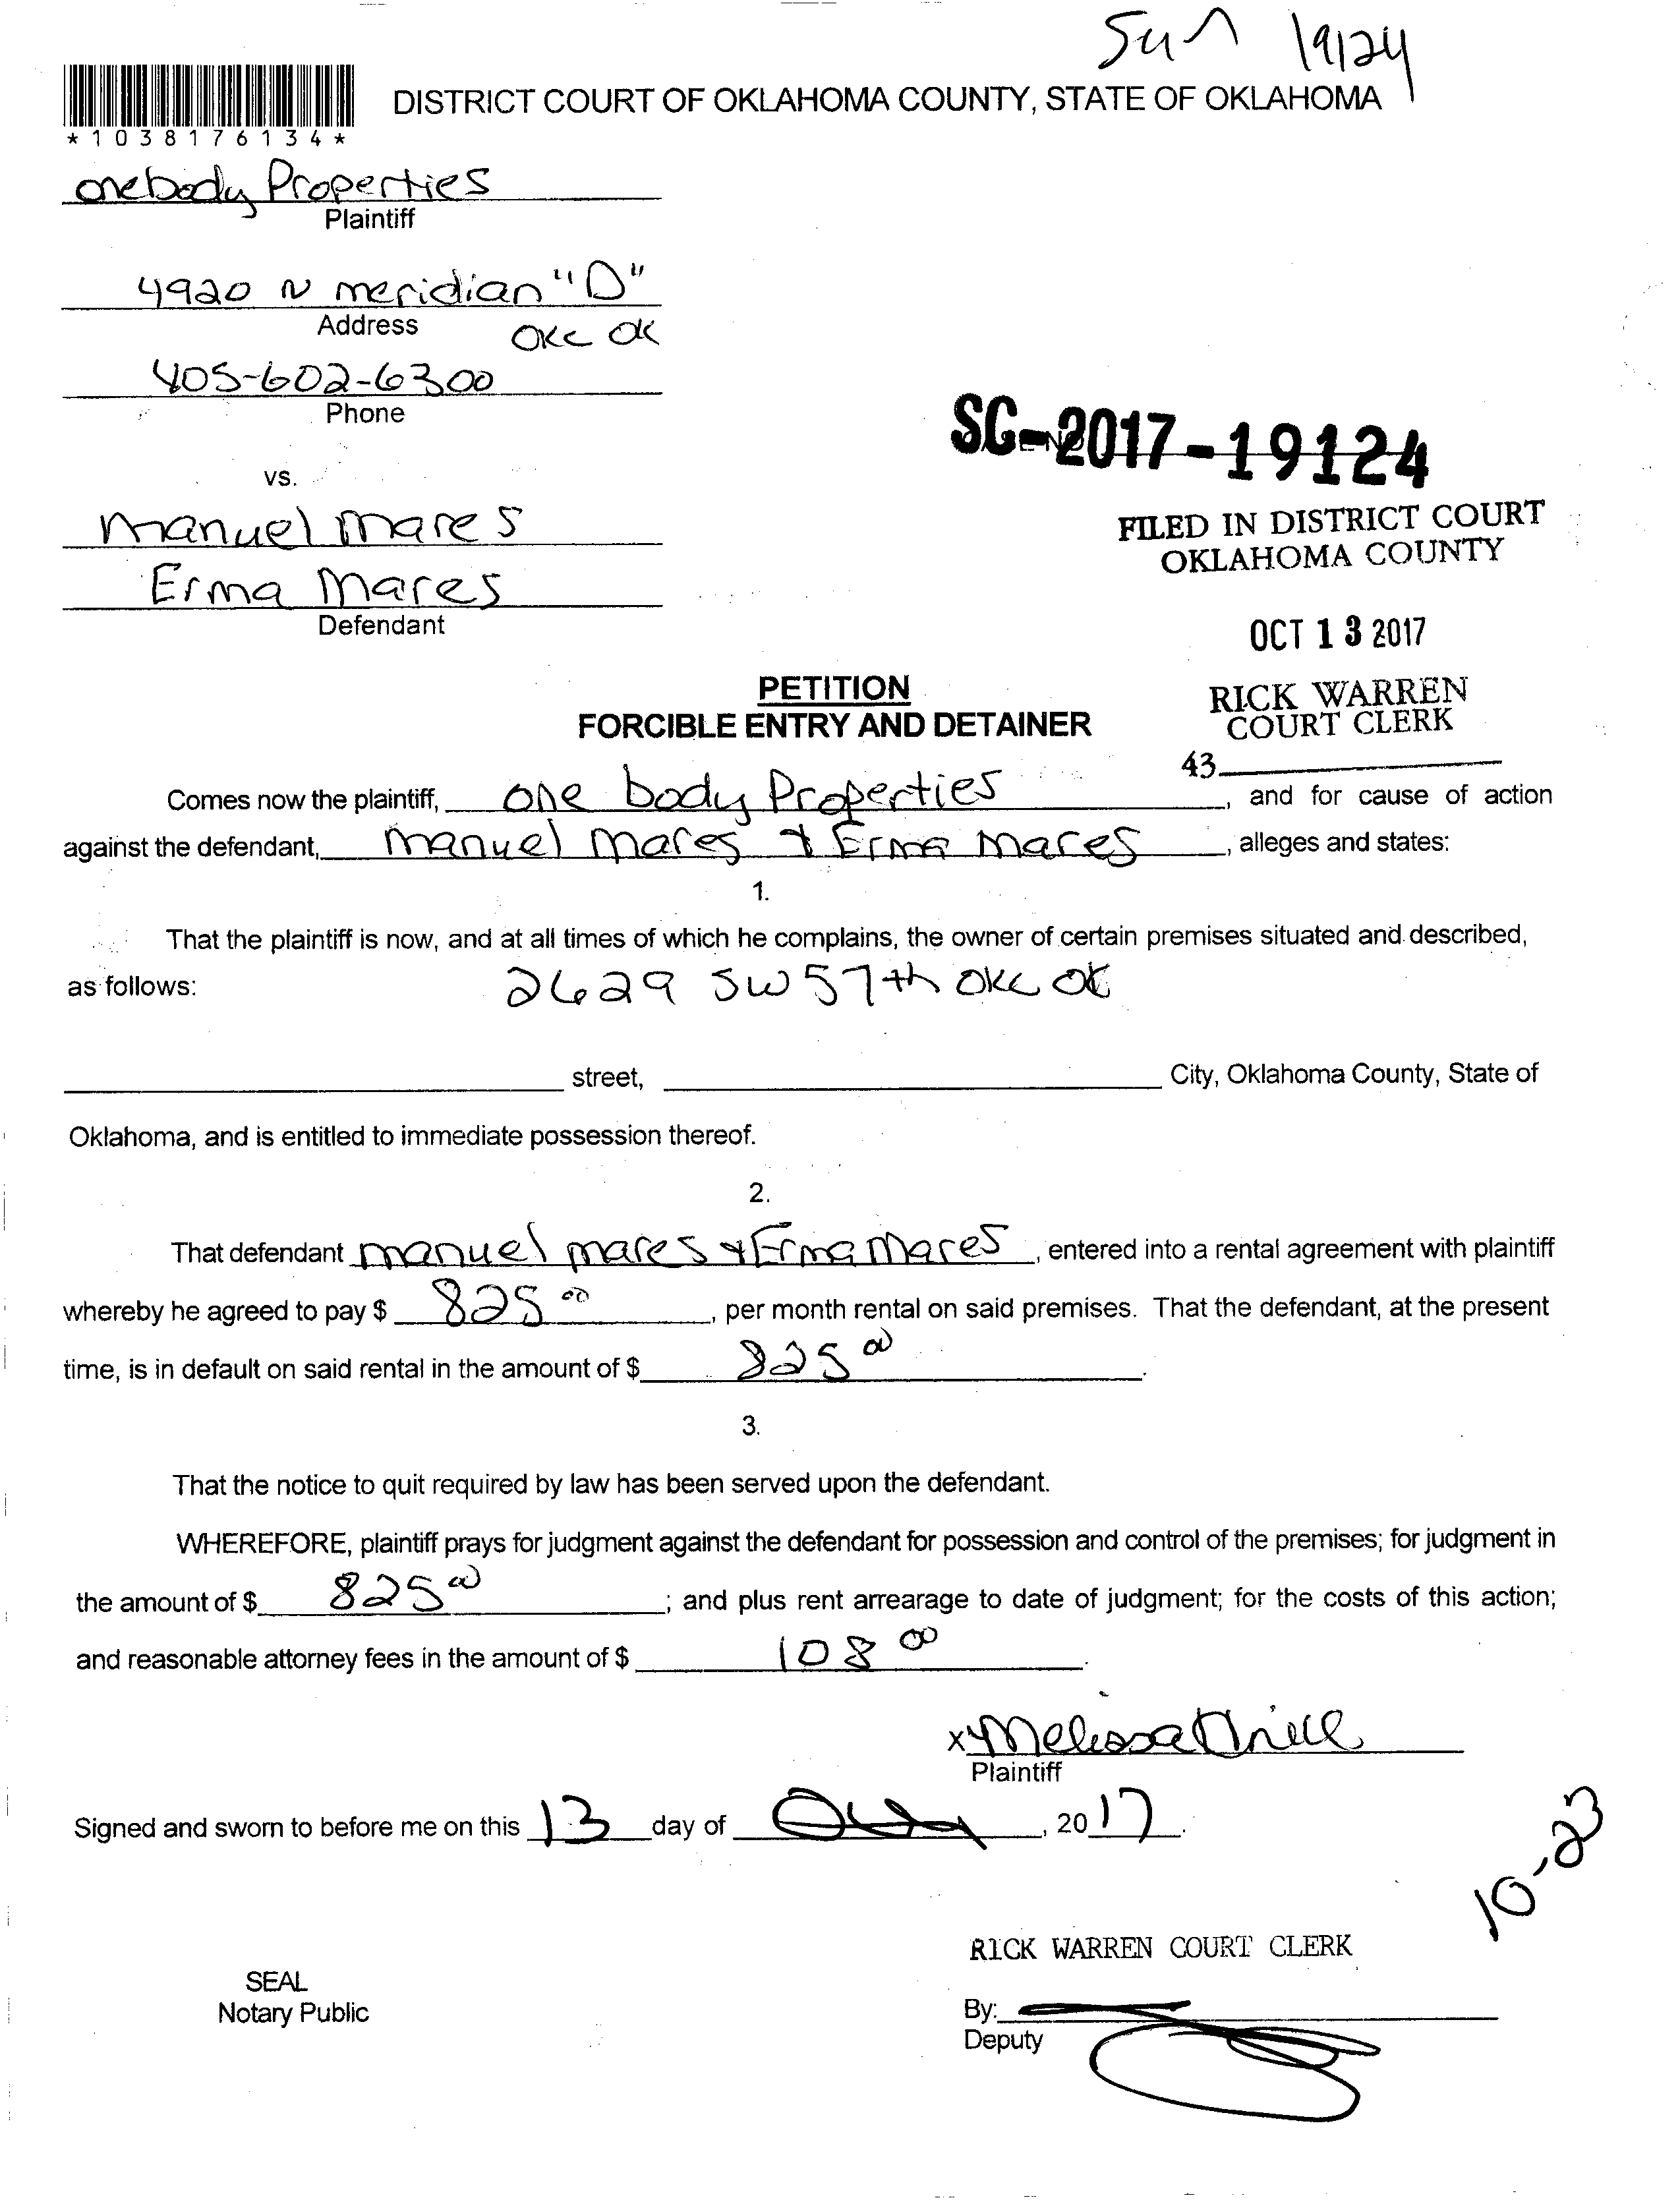 19124
DISTRICT COURT OF OKLAHOMA COUNTY, STATE OF OKLAHOMA
*1038176134*
onebody Properties
Plaintiff
4920 N meridian "D"
Address OKC OK
405-602-6300
Phone
SC-2017-19124
vs.
manuel mares
FILED IN DISTRICT COURT
OKLAHOMA COUNTY
Erma Mares
Defendant
OCT 13 2017
PETITION
RICK WARREN
FORCIBLE ENTRY AND DETAINER
COURT CLERK
43
Comes now the plaintiff, one body Properties, and for cause of action
against the defendant, manuel mares & Erma mares, alleges and states:
1.
That the plaintiff is now, and at all times of which he complains, the owner of certain premises situated and described,
as follows: 2629 SW 57th OKC OK
street, City, Oklahoma County, State of
Oklahoma, and is entitled to immediate possession thereof.
2.
That defendant manuel mares & Erma Mares, entered into a rental agreement with plaintiff
whereby he agreed to pay $ 825 00, per month rental on said premises. That the defendant, at the present
time, is in default on said rental in the amount of $ 825 00.
3.
That the notice to quit required by law has been served upon the defendant.
WHEREFORE, plaintiff prays for judgment against the defendant for possession and control of the premises; for judgment in
the amount of $ 825 00; and plus rent arrearage to date of judgment; for the costs of this action;
and reasonable attorney fees in the amount of $ 108 00.
x Melissa
Plaintiff
Signed and sworn to before me on this 13 day of , 2017.
10-23
RICK WARREN COURT CLERK
SEAL
Notary Public
By:
Deputy